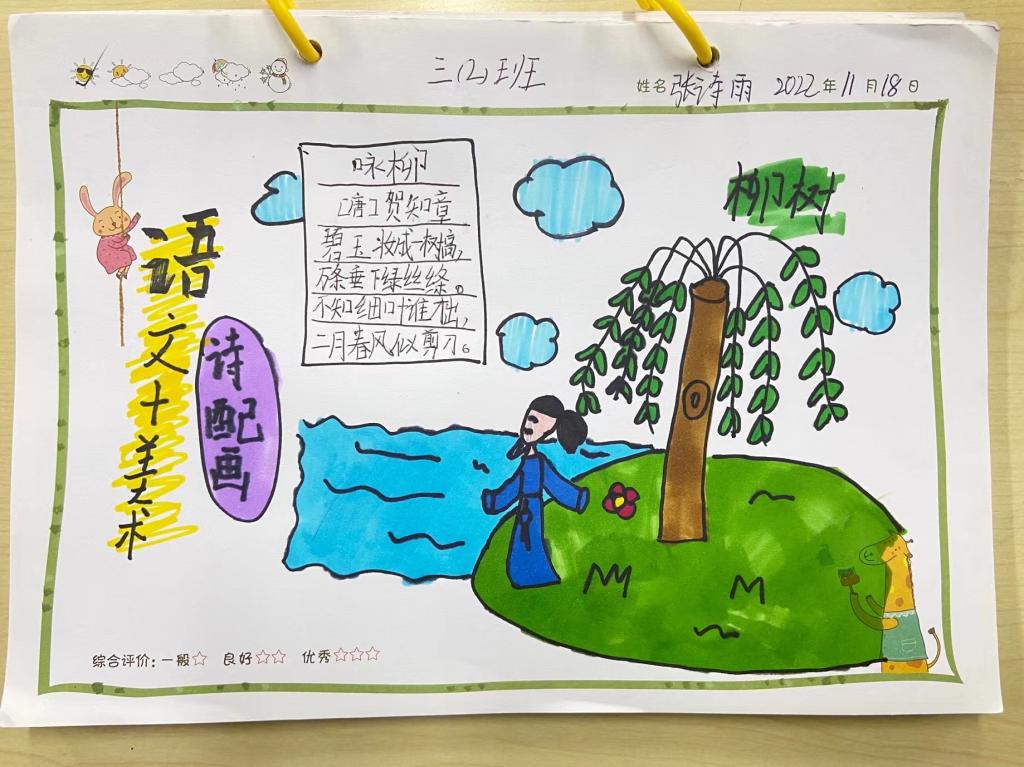 三(2)班
姓名 张诗雨 2022年11月18日
咏柳
[唐]贺知章
碧玉妆成一树高,
万条垂下绿丝绦。
不知细叶谁出,
二月春风似剪刀。
柳树
语文+美术
诗配画
综合评价:一般☆ 良好☆☆ 优秀☆☆☆